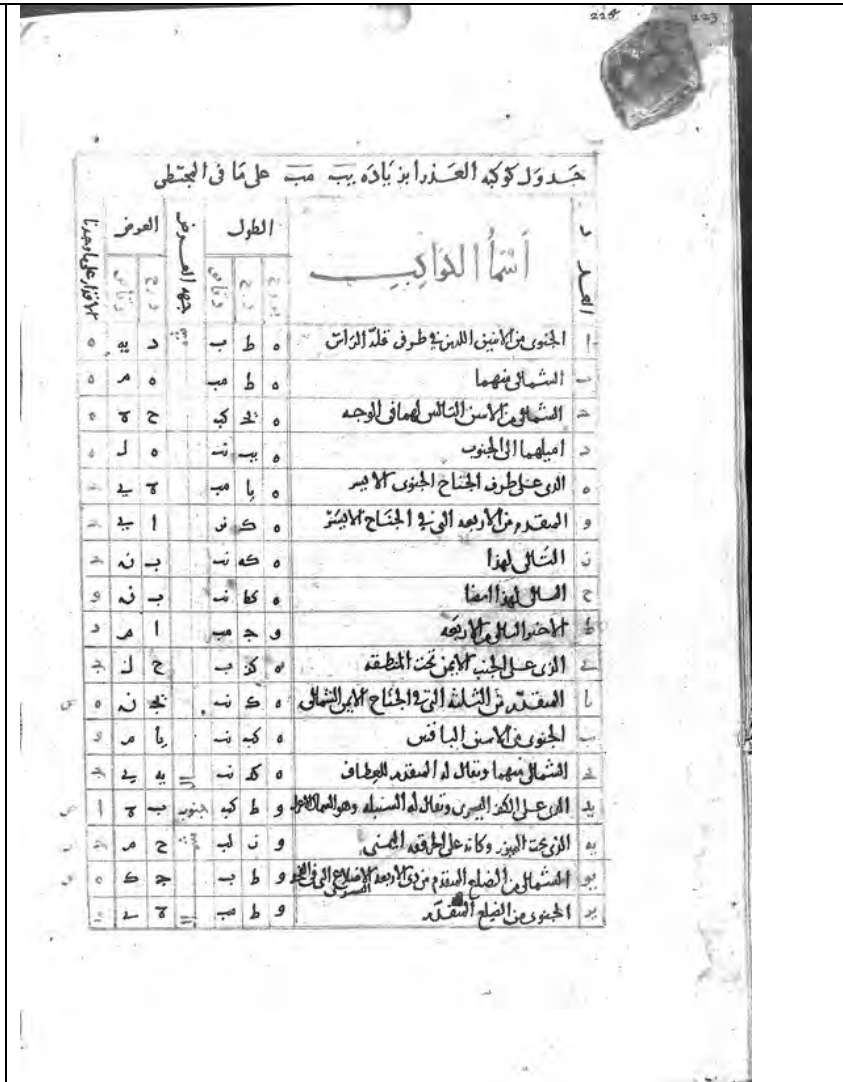 224 223
جدول كوكبه العذرا بزياده يب مب على ما فى المجسطى
العدد اسما الكواكب الطول جهه العرض العرض الاقدار على ما وجدنا
بروج درج دقايق درج دقايق
ا الجنوبى من الاثنين اللذين فى طرف قلة الراس ه ط ب د يه ه
ب الشمالى منهما ه ط مب ه م ه
ج الشمالى من الاثنين التاليين لهما فى الوجه ح ه ه
د اميلهما الى الجنوب ه يب نب ه ل ه
ه الذى على طرف الجناح الجنوبى الايسر ه يا مب ه ي
و المتقدم من الاربعه التى فى الجناح الايسر ه ك ا ي
ز التالى لهذا ه كه نب ب ن
ح التالى لهذا ايضا ه كط نب ب ن و
ط الاخير التالى من الاربعه و ج مب ا م د
ي الذى على الجنب الايمن تحت المنطقه ه كز ب ح ل ج
يا المتقدم من الثلثه التى فى الجناح الايمن الشمالى ه ك نب يج ن ه
يب الجنوبى من الاثنين الباقيين ه كب نب يا م و
يج الشمالى منهما ويقال له المتقدم للقطاف ه كد نب يه ي ج
يد الذى على الكف اليسرى ويقال له السنبله وهو السماك الاعزل و ط كب جنوب ب ه ا
يه الذى تحت الميزر وكانه على الحرقفه اليمنى و ز لب ح م
يو الشمالى من الضلع المتقدم من ذى الاربعه الاضلاع التى فى الفخذ اليسرى و ط ب ج ك ه
يز الجنوبى من الضلع المتقدم و ط مب ه ي